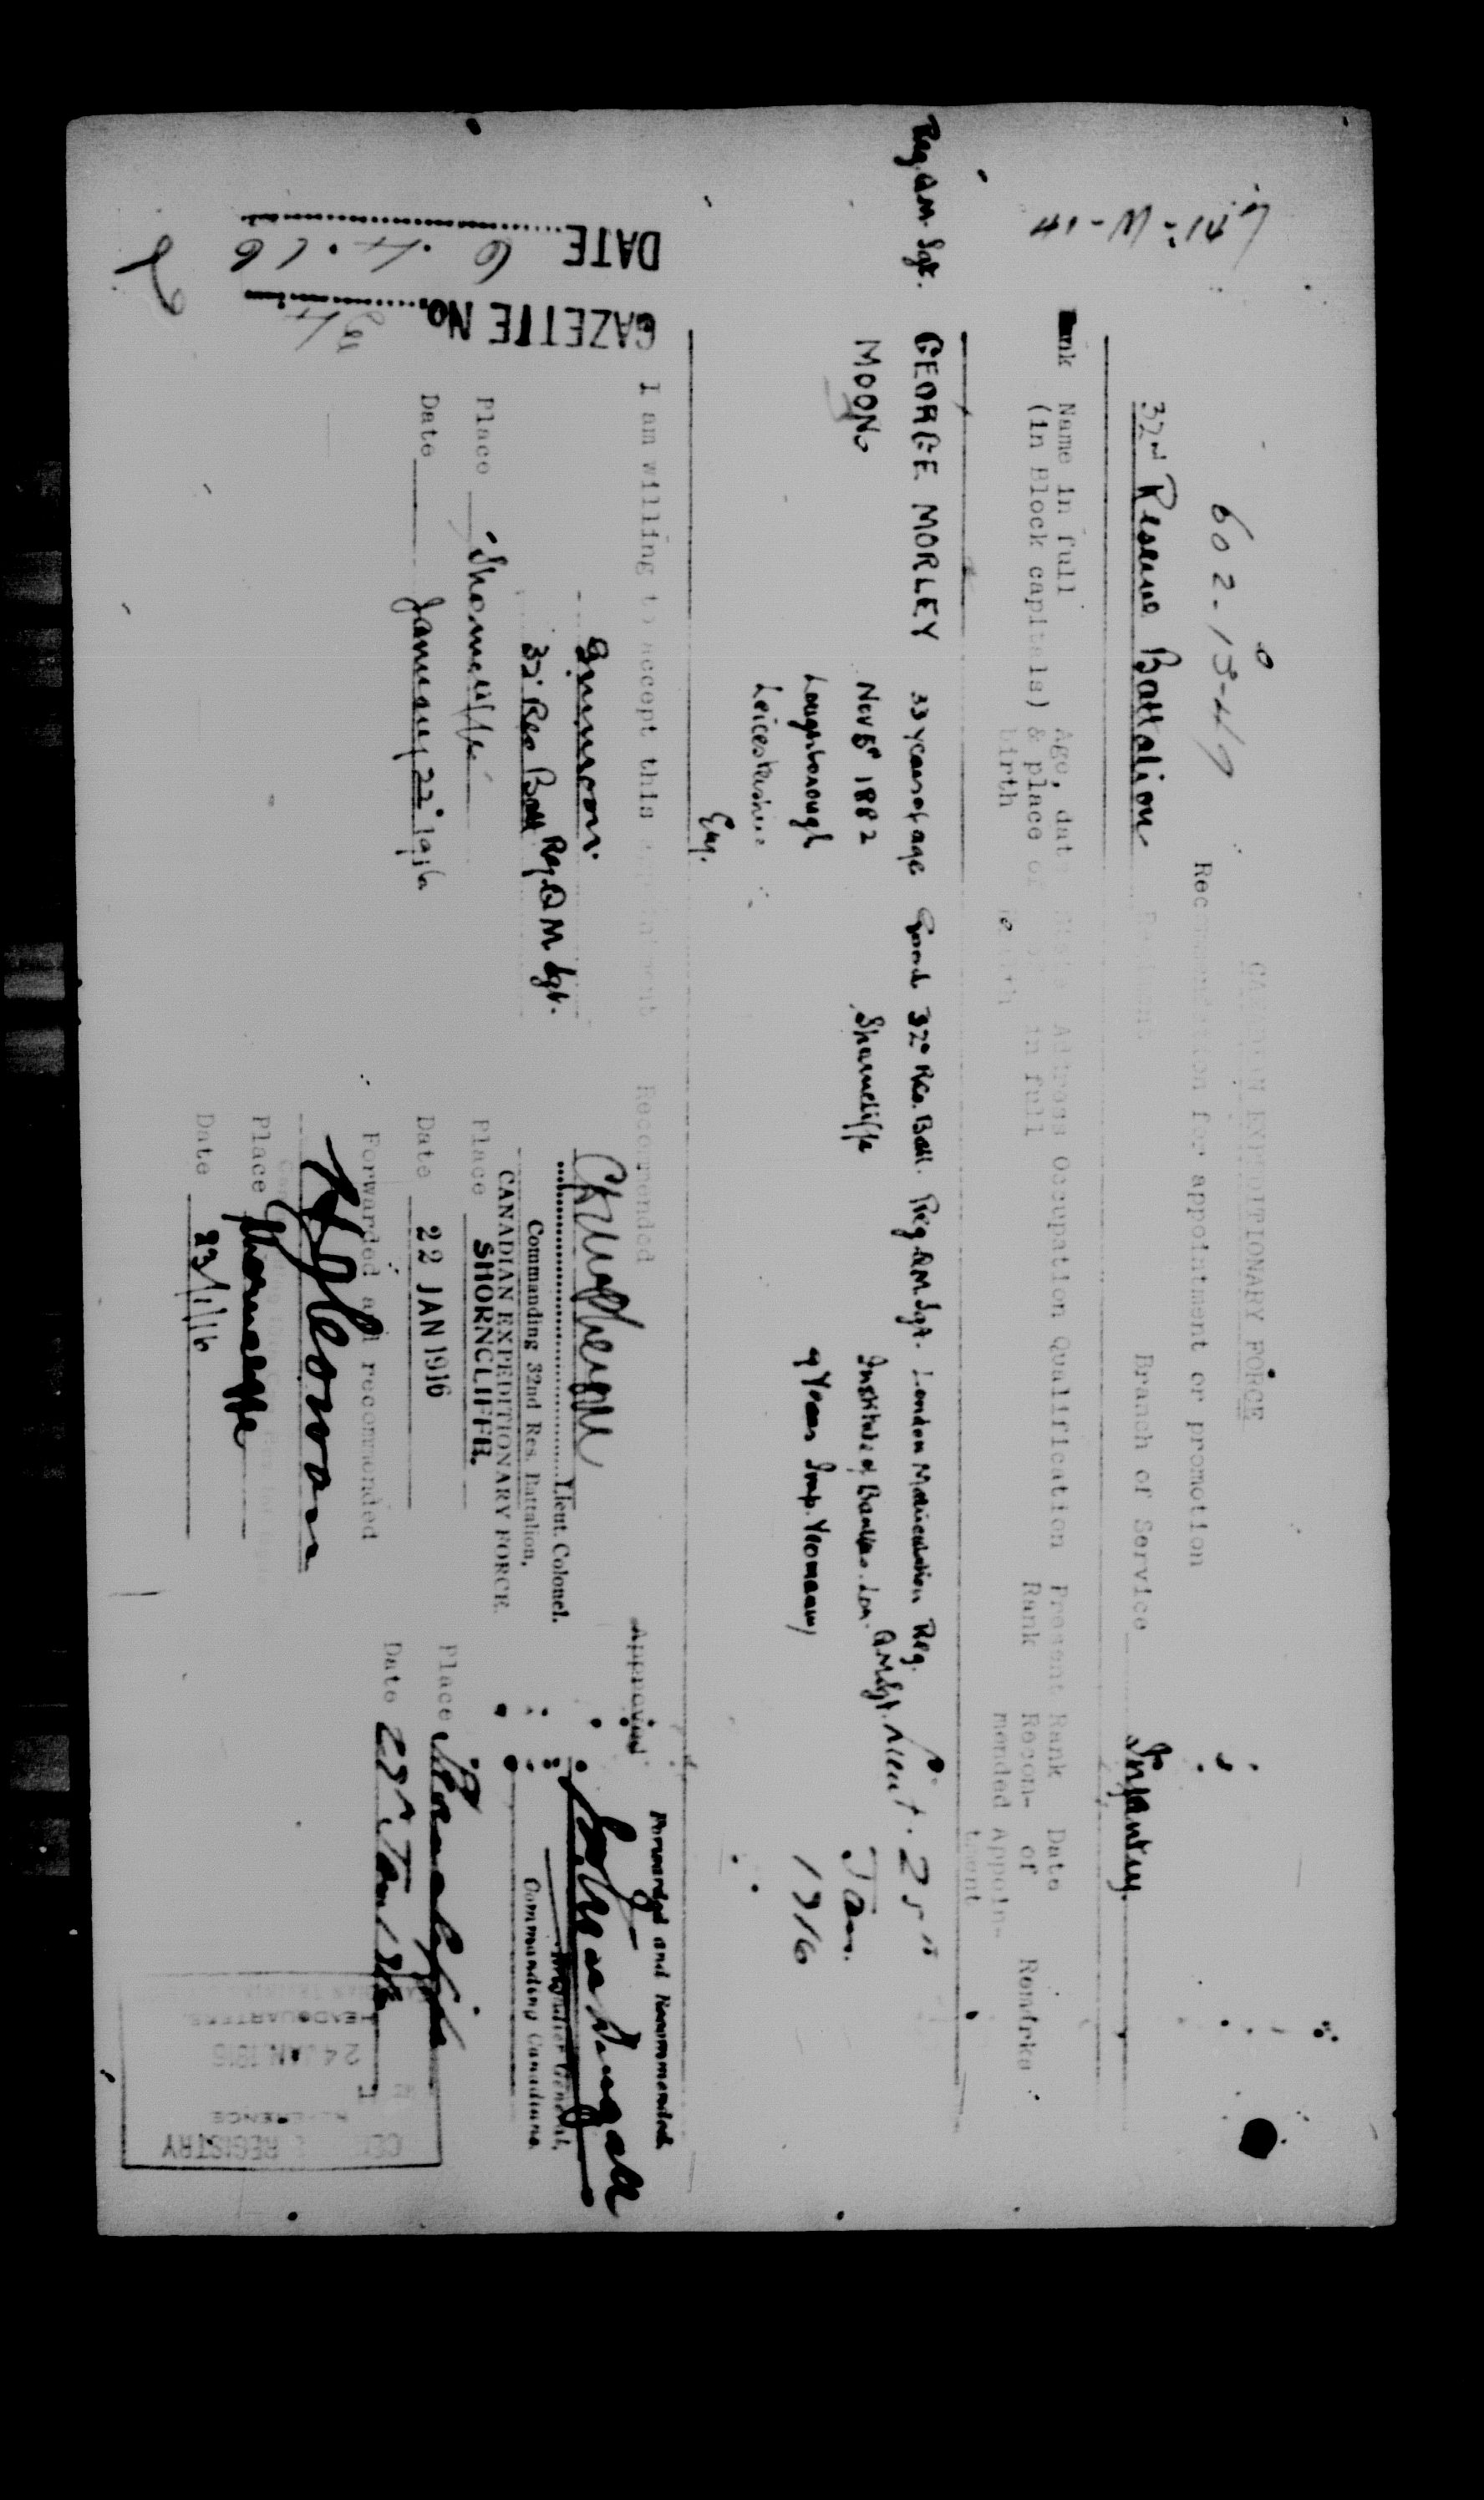 CANADIAN EXPEDITIONARY FORCE
602-13-49
Recommendation for appointment or promotion
32nd Reserve Battalion
Branch of Service Infantry.
Rank
Name in full
(in Block capitals)
Age, date
& place of
birth
Address
in full
Occupation
Qualification
Present
Rank
Rank
Recom-
mended
Date
of
Appoint-
ment
Remarks
Reg. Q.M. Sgt.
GEORGE MORLEY
MOON
33 years of age
Nov 5th 1882
Loughborough
Leicestershire
Eng.
Good
32nd Res. Batt.
Shorncliffe
Reg. QM Sgt.
London Matriculation
Institute of Bankers. Lon.
9 Years Imp. Yeomanry
Reg.
Q.M. Sgt.
Lieut.
25th
Jan.
1916
I am willing to accept this appointment
GMMoon.
Reg. QM Sgt.
32nd Res Batt
Place Shorncliffe
Date January 22nd 1916
Recommended
Lieut. Colonel.
Commanding 32nd Res. Battalion,
CANADIAN EXPEDITIONARY FORCE.
Place SHORNCLIFFE.
Date 22 JAN 1916
Forwarded and recommended
Place Shorncliffe
Date 23/1/16
Approved
Forwarded and Recommended
Brigadier General,
Commanding Canadians.
Place Shorncliffe
Date
GAZETTE No.
DATE 6.4.16
REGISTRY
REFERENCE
24 JAN 1916
HEADQUARTERS